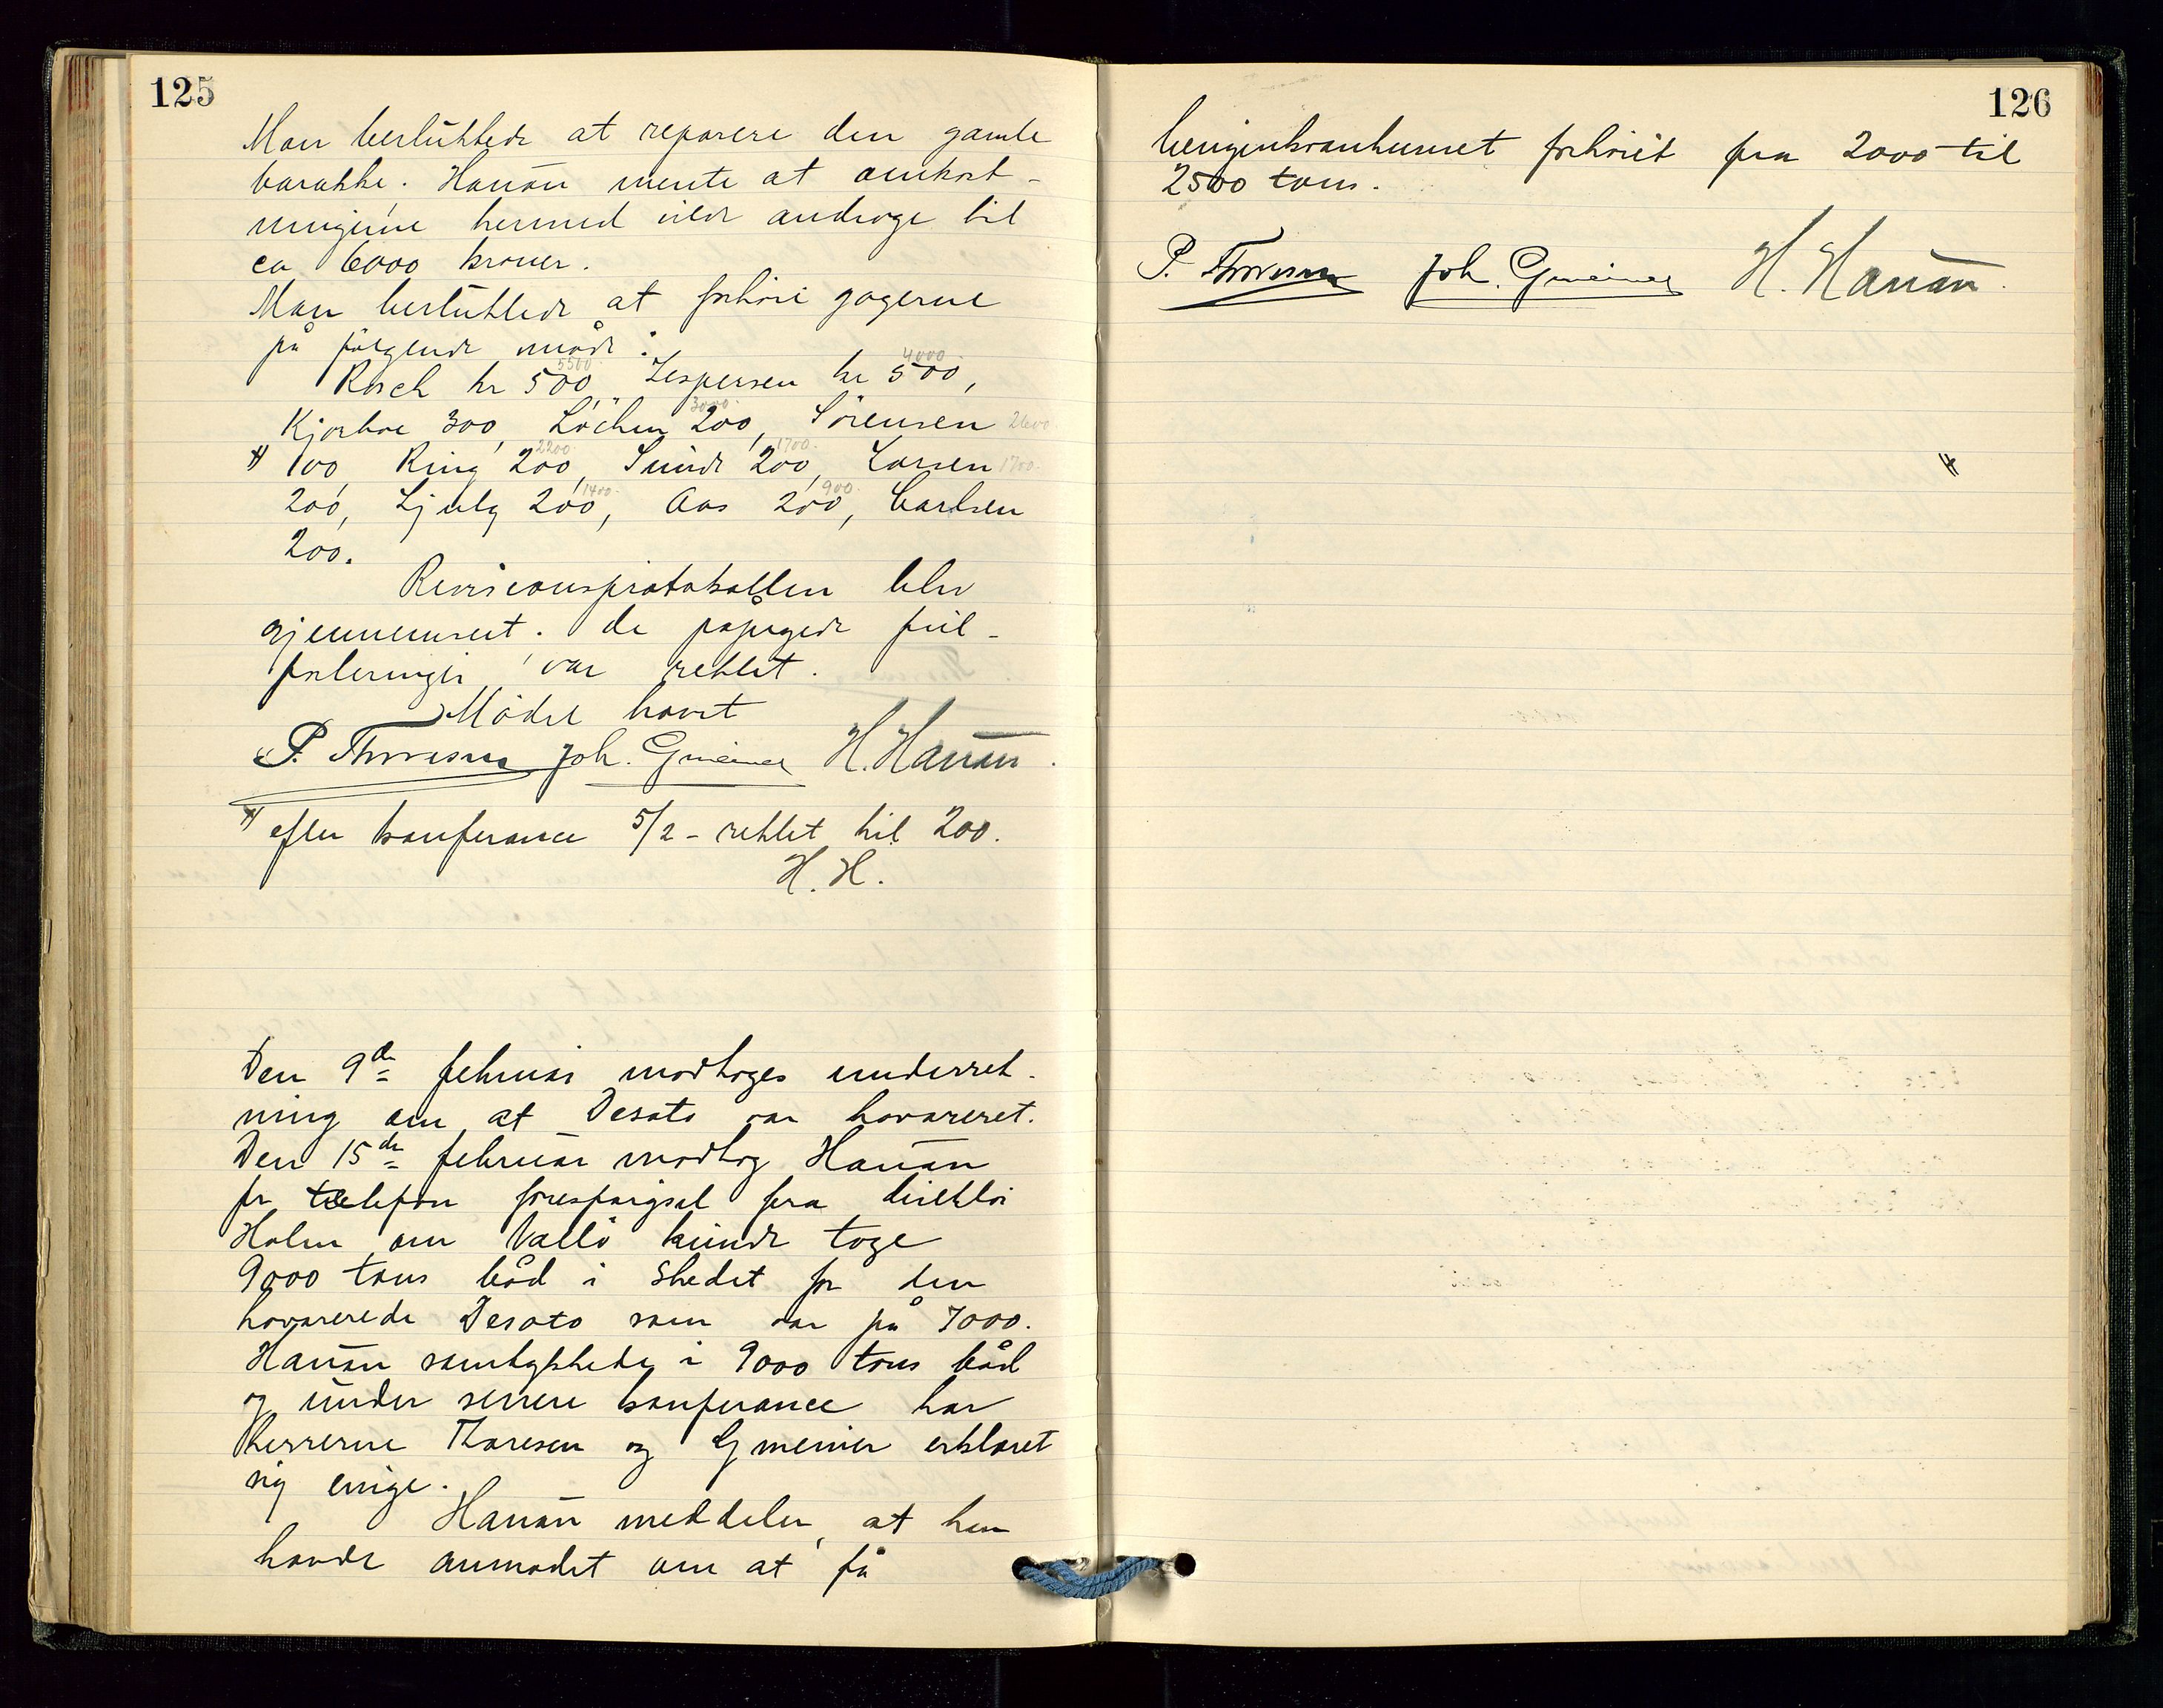 125
Man besluttede at reparere den gamle
barakke. Hanån mente at omkost-
ningerne hermed vilde andrage til
ca 6000 kroner.
Man besluttede at forhöie gagerne
på fölgende måde:
5500 4000
Rosch kr 500, Jespersen kr 500,
3000
Kjorboe 300, Löchen 200, Sörensen 2600
2200 1700
# 100, Ring 200, Sunde 200, Larsen 1700
1400 900
200, Ljulg 200, Aas 200, Carlsen
200.
Revisionsprotokollen blev
gjennemseet. De påpegede feil-
posteringer var rettet.
Mödet hævet
P. Thoresen Joh. Gmeiner H. Hanån
# efter konferance 5/2 - rettet til 200.
H. H.
Den 9de februar modtoges underret-
ning om at Desoto var havareret.
Den 15de februar modtog Hanån
pr telefon forespörgsel fra direktör
Holm om Vallö kunde tage
9000 tons båd i stedet for den
havarerede Desoto som var på 7000.
Hanån samtykkede i 9000 tons båd
og under senere konferance har
herrerne Thoresen og Gmeiner erklæret
sig enige.
Hanån meddeler, at han
havde anmodet om at få
126
bensinkvantumet forhöiet fra 2000 til
2500 tons.
P. Thoresen Joh. Gmeiner H. Hanån
#